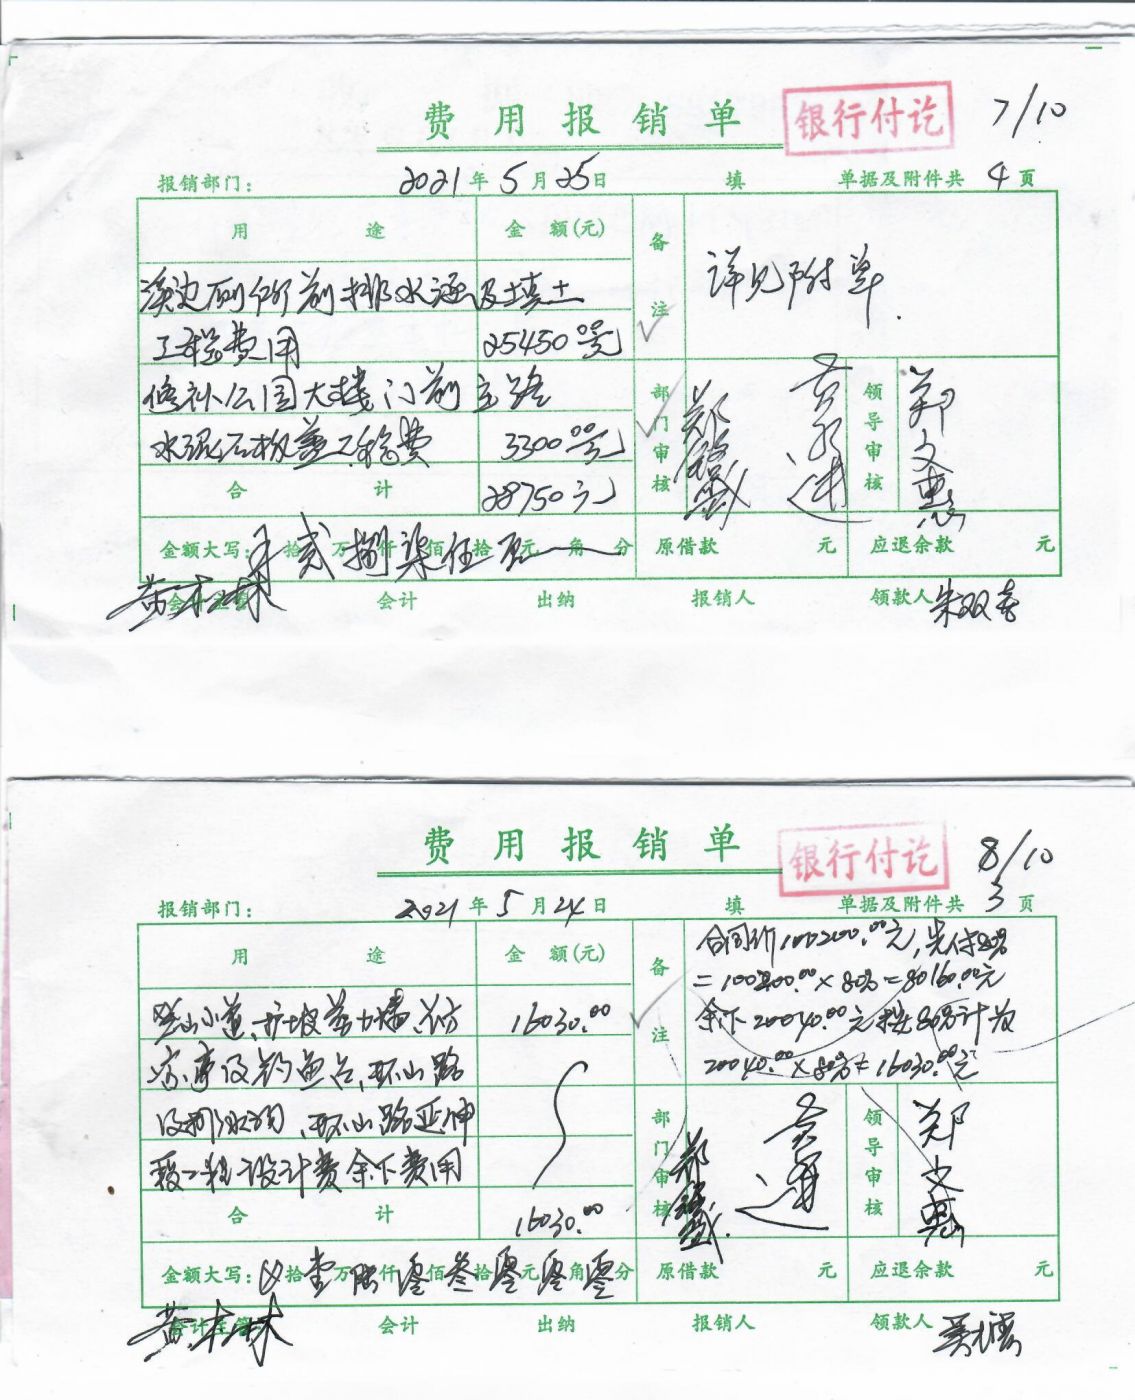 费用报销单
银行付讫
7/10
报销部门： 2021年5月25日 填 单据及附件共4页
用途 金额(元) 备注
详见附单.
溪边厕所前排水涵及填土
工程费用 25450.00元
修补公园大楼门前主路
水泥石板並工程费 3300.00元
合计 28750元
部门审核 领导审核 郑文惠
金额大写： 拾贰万捌仟柒佰伍拾元角分 原借款 元 应退余款 元
会计主管 会计 出纳 报销人 领款人
费用报销单
银行付讫
8/10
报销部门： 2021年5月24日 填 单据及附件共3页
用途 金额(元) 备注
合同价100200.00元,先付80%
=100200.00×80%=80160.00元
余下20040.00元按80%计为
20040.00×80%=16030.00元
登山小道,护坡
16030.00
及钓鱼台,环山路
及排水沟,环山路延伸
段工程设计费余下费用
合计 16030.00
部门审核 领导审核 郑文惠
金额大写： 拾壹万陆仟零佰叁拾零元零角零分 原借款 元 应退余款 元
会计主管 会计 出纳 报销人 领款人